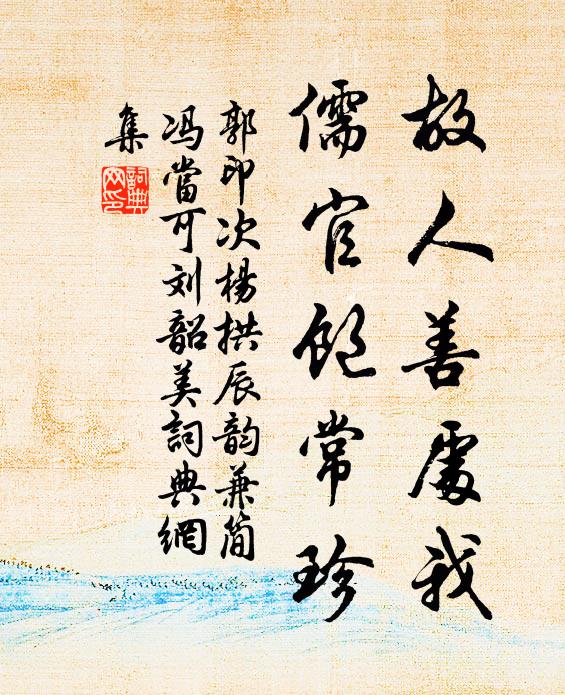 故人善處我
儒官飽常珍
郭印次楊拱辰韵兼简
冯當可刘韶美詞典網
集
詞典网印